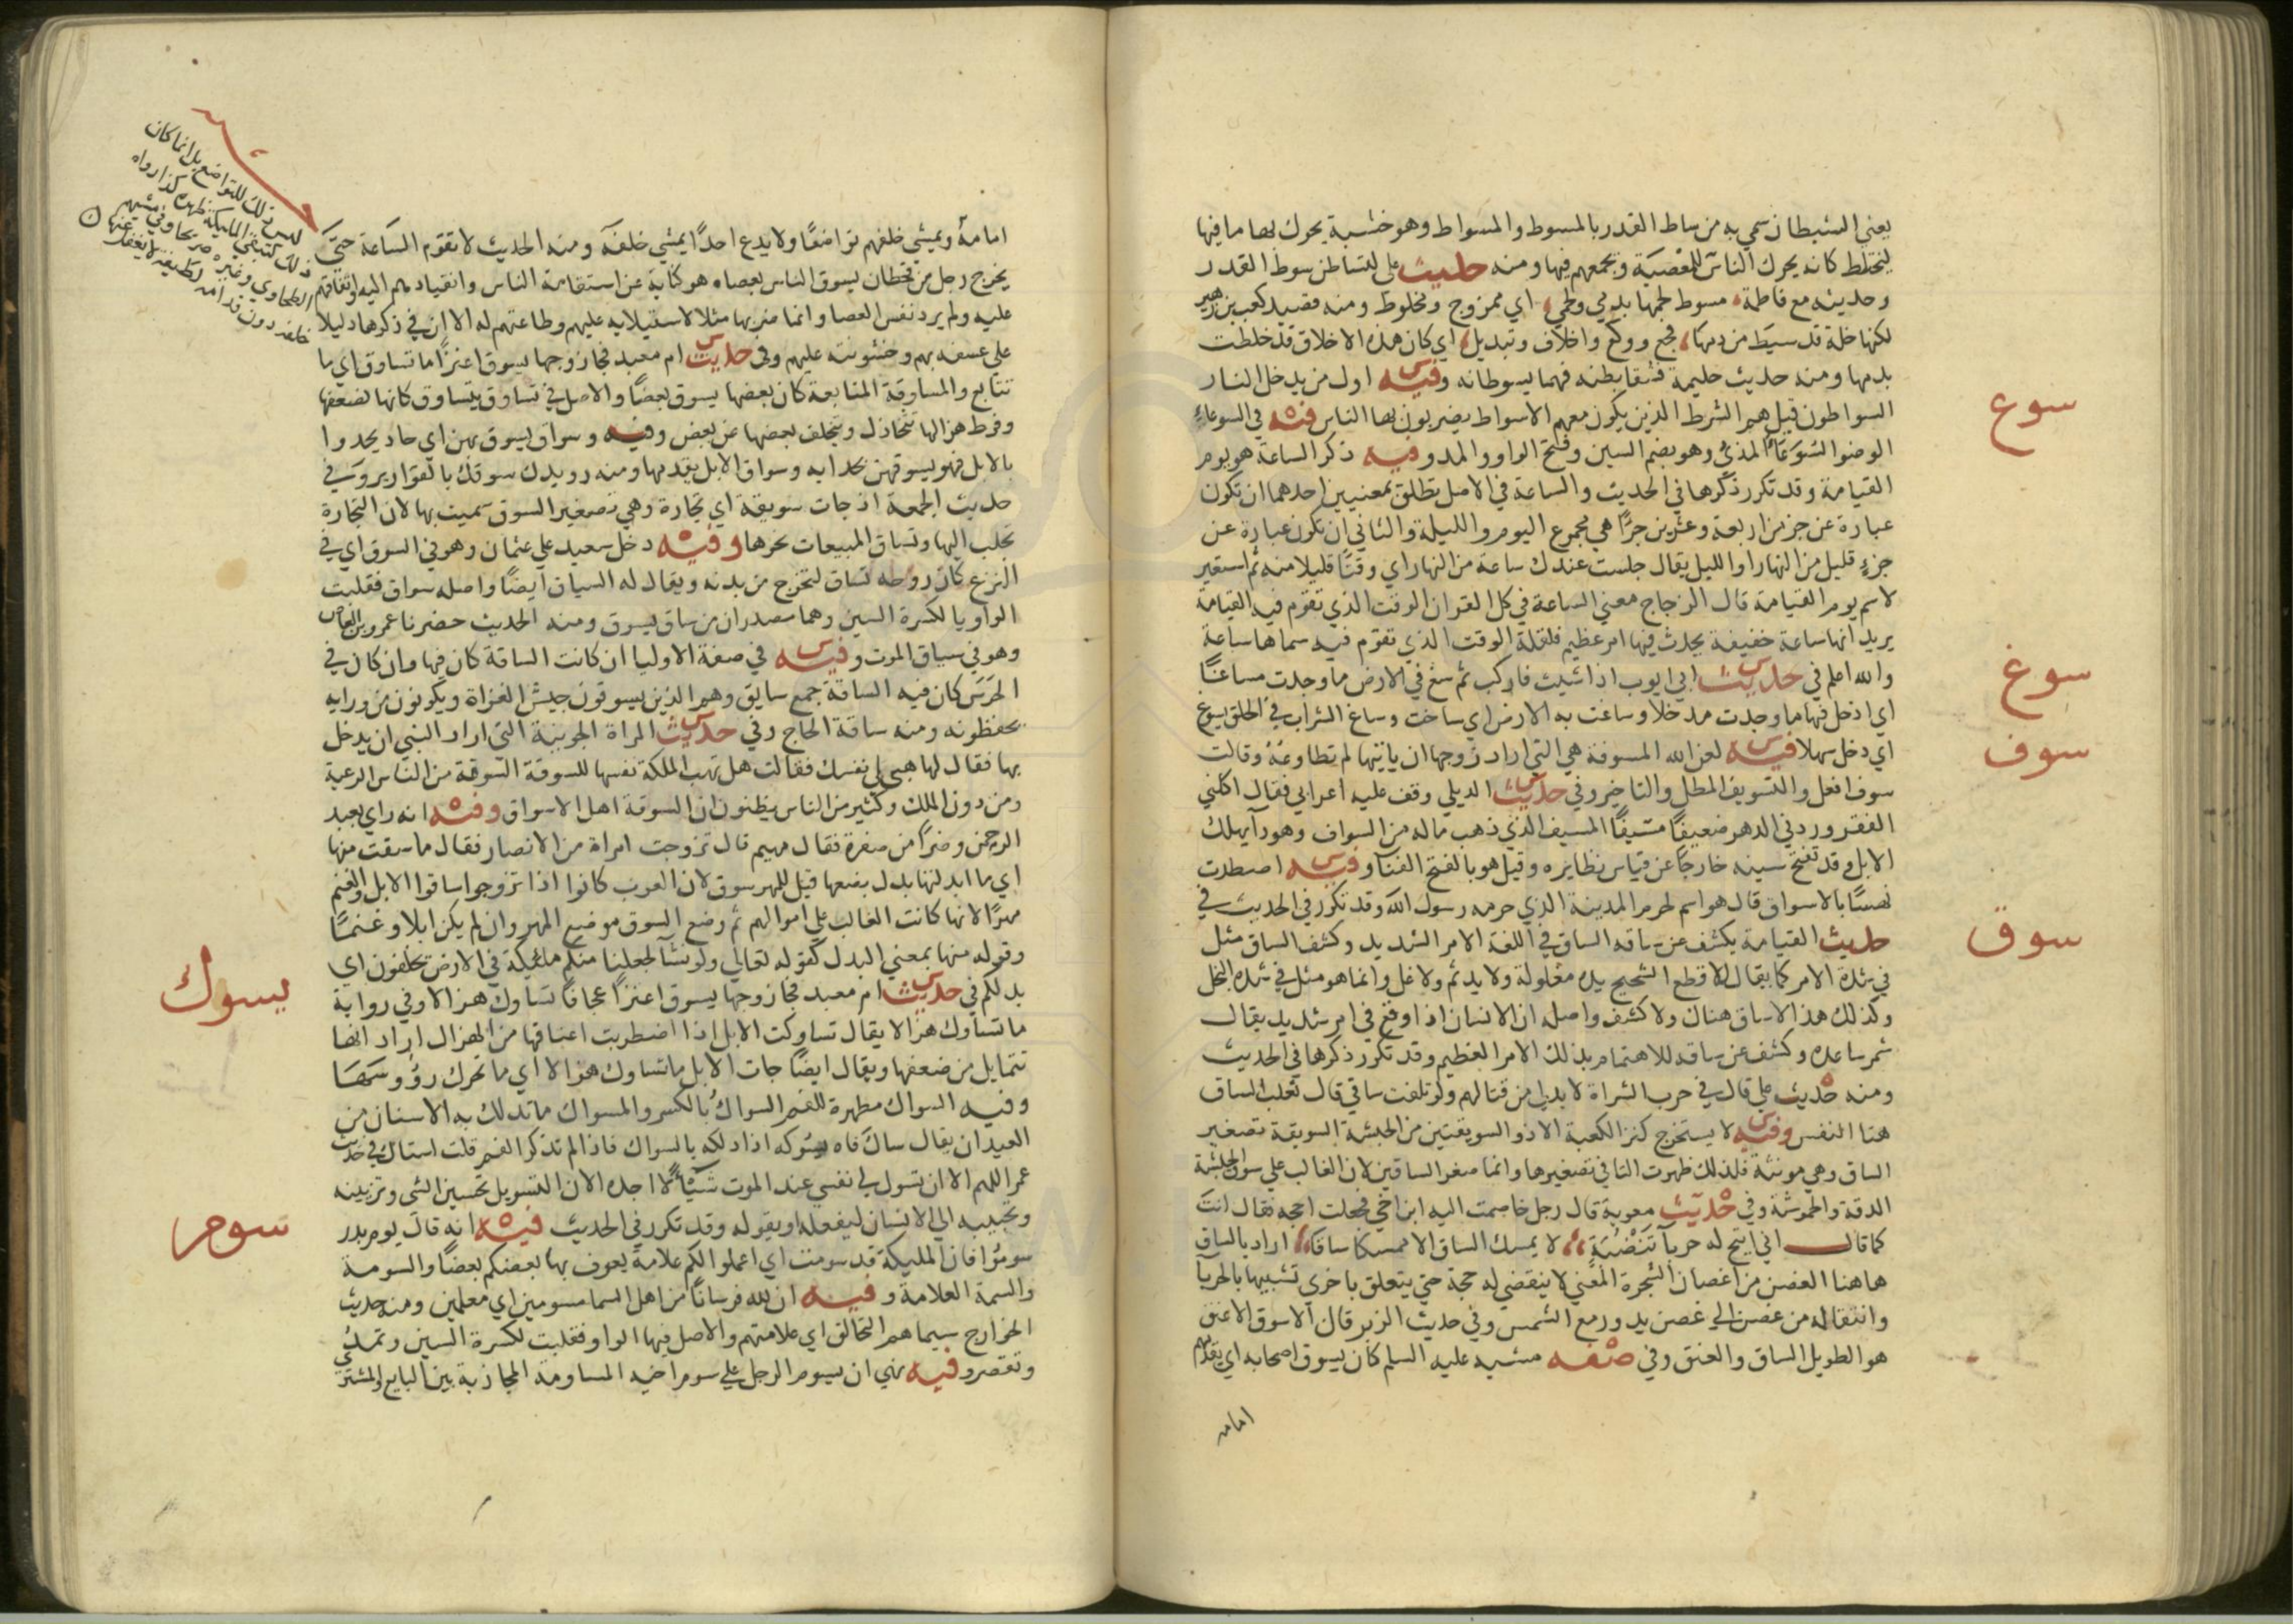 يعني الشيطان سمي به من ساط القدر بالمسوط والمسواط وهو خشبة يحرك بها ما فيها
ليختلط كانه يحرك الناس للمعصية ويجمعهم فيها ومنه حديث علي لتساطن سوط القدر
وحديثه مع فاطمة مسوط لحمها بدمي ولحمي اي ممزوج ومخلوط ومنه قصيد كعب بن زهير
لكنها خلة قد سيط من دمها فجع وولع واخلاف وتبديل اي كان هذه الاخلاق قد خلطت
بدمها ومنه حديث حليمة فشقا بطنه فهما يسوطانه وفيه اول من يدخل النار
سوع
السواطون قيل هم الشرط الذين يكون معهم الاسواط يضربون بها الناس فيه في السوعاء
الوضوا السُّوَعَاءُ المذي وهو بضم السين وفتح الواو والمد وفيه ذكر الساعة هو يوم
القيامة وقد تكرر ذكرها في الحديث والساعة في الاصل يطلق بمعنيين احدهما ان تكون
عبارة عن جزء من اربعة وعشرين جزًا هي مجموع اليوم والليلة والثاني ان تكون عبارة عن
جزءٍ قليل من النهار او الليل يقال جلست عندك ساعة من النهار اي وقتًا قليلا منه ثم استعير
لاسم يوم القيامة قال الزجاج معني الساعة في كل القران الوقت الذي تقوم فيه القيامة
يريد انها ساعة خفيفة يحدث فيها امر عظيم فلقلة الوقت الذي تقوم فيه سماها ساعة
سوغ
والله اعلم في حديث ابي ايوب اذا شيت فاركب ثم سغ في الارض ما وجدت مساغًا
اي ادخل فيها ما وجدت مدخلا وساغت به الارض اي ساخت وساغ الشراب في الحلق يسوغ
سوف
اي دخل سهلا فيه لعن الله المسوفة هي التي اراد زوجها ان ياتيها لم تطاوعه وقالت
سوف افعل والتسويف المطل والتاخير وفي حديث الديلي وقف عليه اعرابي فقال اكلني
الفقر وردني الدهر ضعيفًا مسيفًا المسيف الذي ذهب ماله من السواف وهو دآ يهلك
الابل وقد تفتح سينه خارجًا عن قياس نظايره وقيل هو بالفتح الفنآ وفيه اصطدت
نهسًا بالاسواق قال هو اسم لحرم المدينة الذي حرمه رسول الله وقد تكرر في الحديث في
سوق
حديث القيامة يكشف عن ساقه الساق في اللغة الامر الشديد وكشف الساق مثل
في شدة الامر كما يقال للاقطع الشحيح يده مغلولة ولا يد ثم ولا غل وانما هو مثل في شدة البخل
وكذلك هذا لا ساق هناك ولا كشف واصله ان الانسان اذا وقع في امر شديد يقال
شمر ساعده وكشف عن ساقه للاهتمام بذلك الامر العظيم وقد تكرر ذكرها في الحديث
ومنه حديث علي قال في حرب الشراة لا بد لي من قتالهم ولو تلفت ساقي قال ثعلب الساق
هنا النفس وفيه لا يستخرج كنز الكعبة الا ذو السويقتين من الحبشة السويقة تصغير
الساق وهي مونثة فلذلك ظهرت التا في تصغيرها وانما صغر الساقين لان الغالب علي سوق الحبشة
الدقة والحموشة وفي حديث معوية قال رجل خاصمت اليه ابن اخي فجعلت احجه فقال انت
كما قال اني اتيح له حربآ تَنْضُبَةٍ لا يمسك الساق الا ممسكا ساقا اراد بالساق
هاهنا الغصن من اغصان الشجرة المعني لا ينقضي له حجة حتي يتعلق باخري تشبيها بالحربآ
وانتقاله من غصن الي غصن يدور مع الشمس وفي حديث الزبرقان الاسوق الاعنق
هو الطويل الساق والعنق وفي صفة مشيه عليه السلم كان يسوق اصحابه اي يقدمهم
امامه
امامهُ ويمشي خلفهم تواضعًا ولا يدع احدًا يمشي خلفه ومنه الحديث لا تقوم السَاعة حتَّي
ليس ذلك للتواضع بل انما كان
ذلك لتبقي الملايكة ظهره كذا رواه
الطحاوي وغيره صريحا وفي مشيهم
خلفه دون قدامه لطيفة لا يغفل عنها
يخرج رجل من قحطان يسوق الناس بعصاه هو كناية عن استقامة الناس وانقيادهم اليه واتفاقهم
عليه ولم يرد نفس العصا وانما ضربها مثلا لاستيلايه عليهم وطاعتهم له الا ان في ذكرها دليلا
علي عسفه بهم وخشونته عليهم وفي حديث ام معبد فجا زوجها يسوق اعنزًا ما تساوق اي ما
تتابع والمساوقة المتابعة كان بعضها يسوق بعضًا والاصل في تساوق يتساوق كانها لضعفها
وفرط هزالها تتخاذل ويتخلف بعضها عن بعض وفيه وسواق يسوق بهن اي حاد يحدوا
بالابل فهو يسوقهن بحدايه وسواق الابل يقدمها ومنه رويدك سوقك بالقوارير وسَّي في
حديث الجمعة اذ جات سويقة اي تجارة وهي تصغير السوق سميت بها لان التجارة
تجلب اليها وتساق المبيعات نحوها وفيه دخل سعيد علي عثمان وهو في السوق اي في
النزع كان روحه تساق لتخرج من بدنه ويقال له السياق ايضًا واصله سواق فقلبت
الواو يا لكسرة السين وهما مصدران من ساق يسوق ومنه الحديث حضرنا عمرو بن العاص
وهو في سياق الموت وفيه في صفة الاوليا ان كانت الساقة كان فيها وان كان في
الحَرَسِ كان فيه الساقة جمع سايق وهم الذين يسوقون جيش الغزاة ويكونون من ورايه
يحفظونه ومنه ساقة الحاج وفي حديث المراة الجونية التي اراد النبي ان يدخل
بها فقال لها هبي لي نفسك فقالت هل تهب الملكة نفسها للسوقة السوقة من الناس الرعية
ومن دون الملك وكثير من الناس يظنون ان السوقة اهل الاسواق وفيه انه راي بعبد
الرحمن وضرًا من صفرة فقال مهيم قال تزوجت امراة من الانصار فقال ما سقت منها
اي ما ابدلتها بدل بضعها قيل للمهر سوق لان العرب كانوا اذا تزوجوا ساقوا الابل والغنم
مهرًا لانها كانت الغالب علي اموالهم ثم وضع السوق موضع المهر وان لم يكن ابلا وغنمًا
وقوله منها بمعني البدل كقوله تعالي ولو نشآ لجعلنا منكم ملئيكة في الارض يخلفون اي
يسوك
بدلكم في حديث ام معبد فجا زوجها يسوق اعنزًا عجافًا تساوك هزالا وفي رواية
ما تساوك هزالا يقال تساوكت الابل اذا اضطربت اعناقها من الهزال اراد انها
تتمايل من ضعفها ويقال ايضًا جات الابل ما تساوك هزالا اي ما تحرك رؤوسَهَا
وفيه السواك مطهرة للفم السواك بالكسر والمسواك ما تدلك به الاسنان من
العيدان يقال ساك فاه يسُوكه اذا دلكه بالسواك فاذا لم تذكر الفم قلت استاك في حديث
عمر اللهم الا ان تسول لي نفسي عند الموت شَيْئًا لا اجده الان التسويل تحسين الشي وتزيينه
سوم
وتحبيبه الي الانسان ليفعله او يقوله وقد تكرر في الحديث فيه انه قال يوم بدر
سومُوا فان المليكة قد سومت اي اعملوا لكم علامةً يعرف بها بعضكم بعضًا والسومة
والسمة العلامة وفيه ان لله فرسانًا من اهل السما مسومين اي معلمين ومنه حديث
الخوارج سيماهم التحالق اي علامتهم والاصل فيها الواو فقلبت لكسرة السين وتمدُّ
وتقصر وفيه نهي ان يسوم الرجل علي سوم اخيه المساومة المجاذبة بين البايع والمشتري